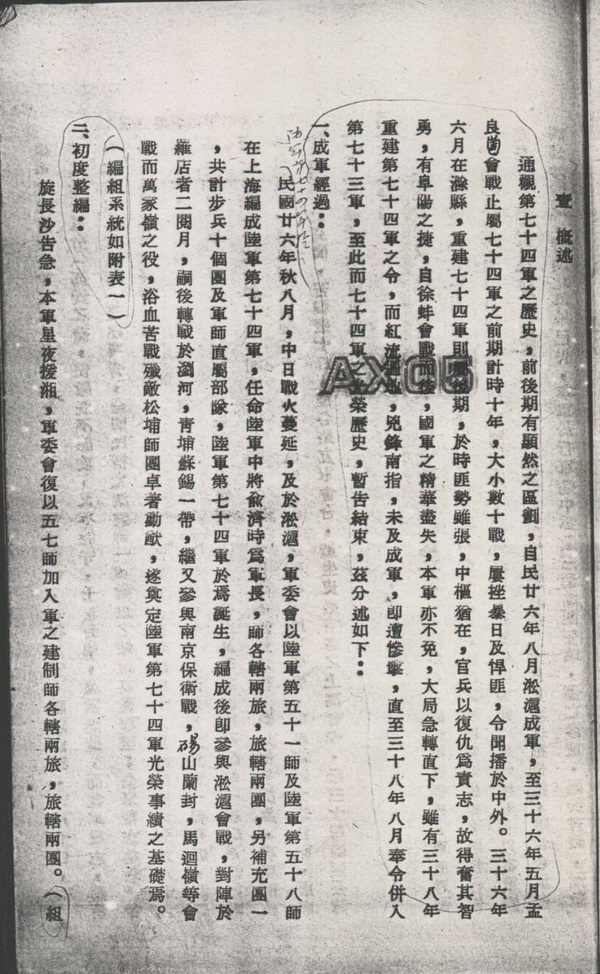 壹 概述
通觀第七十四軍之歷史,前後期有顯然之區劃,自民廿六年八月淞滬成軍,至三十六年五月孟
良崮會戰止屬七十四軍之前期計時十年,大小數十戰,屢挫暴日及悍匪,令聞播於中外。三十六年
六月在滁縣,重建七十四軍則後期,於時匪勢雖張,中樞猶在,官兵以復仇爲責志,故得奮其智
勇,有阜陽之捷,自徐蚌會戰而後,國軍之精華盡失,本軍亦不免,大局急轉直下,雖有三十八年
重建第七十四軍之令,而紅流,兇鋒南指,未及成軍,卽遭慘擊,直至三十八年八月奉令併入
第七十三軍,至此而七十四軍之光榮歷史,暫告結束,茲分述如下:
AXC5
一、成軍經過:
民國廿六年秋八月,中日戰火蔓延,及於淞滬,軍委會以陸軍第五十一師及陸軍第五十八師
在上海編成陸軍第七十四軍,任命陸軍中將兪濟時爲軍長,師各轄兩旅,旅轄兩團,另補充團一
,共計步兵十個團及軍師直屬部隊,陸軍第七十四軍於焉誕生,編成後卽參與淞滬會戰,對陣於
羅店者二閱月,嗣後轉戰於瀏河,青埔蘇錫一帶,繼又參與南京保衛戰,碭山蘭封,馬迴嶺等會
戰而萬家嶺之役,浴血苦戰殲敵松埔師團卓著勳猷,遂奠定陸軍第七十四軍光榮事績之基礎焉。
(編組系統如附表一)
二、初度整編:
旋長沙告急,本軍星夜援湘,軍委會復以五七師加入軍之建制師各轄兩旅,旅轄兩團。(組